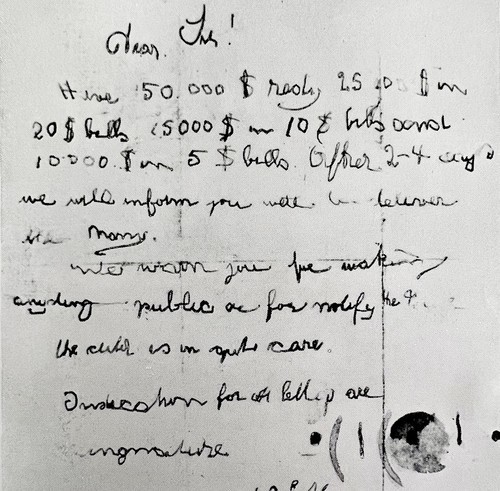 Dear Sir!
Have 50.000 $ redy 25 00 $ in
20 $ bills 15000 $ in 10 $ bills and
10000 $ in 5 $ bills. After 2-4 days
we will inform you were to deliver
the Mony.
We warn you for making
anyding public or for notify the
the child is in gute care.
Indication for all letters are
singnature